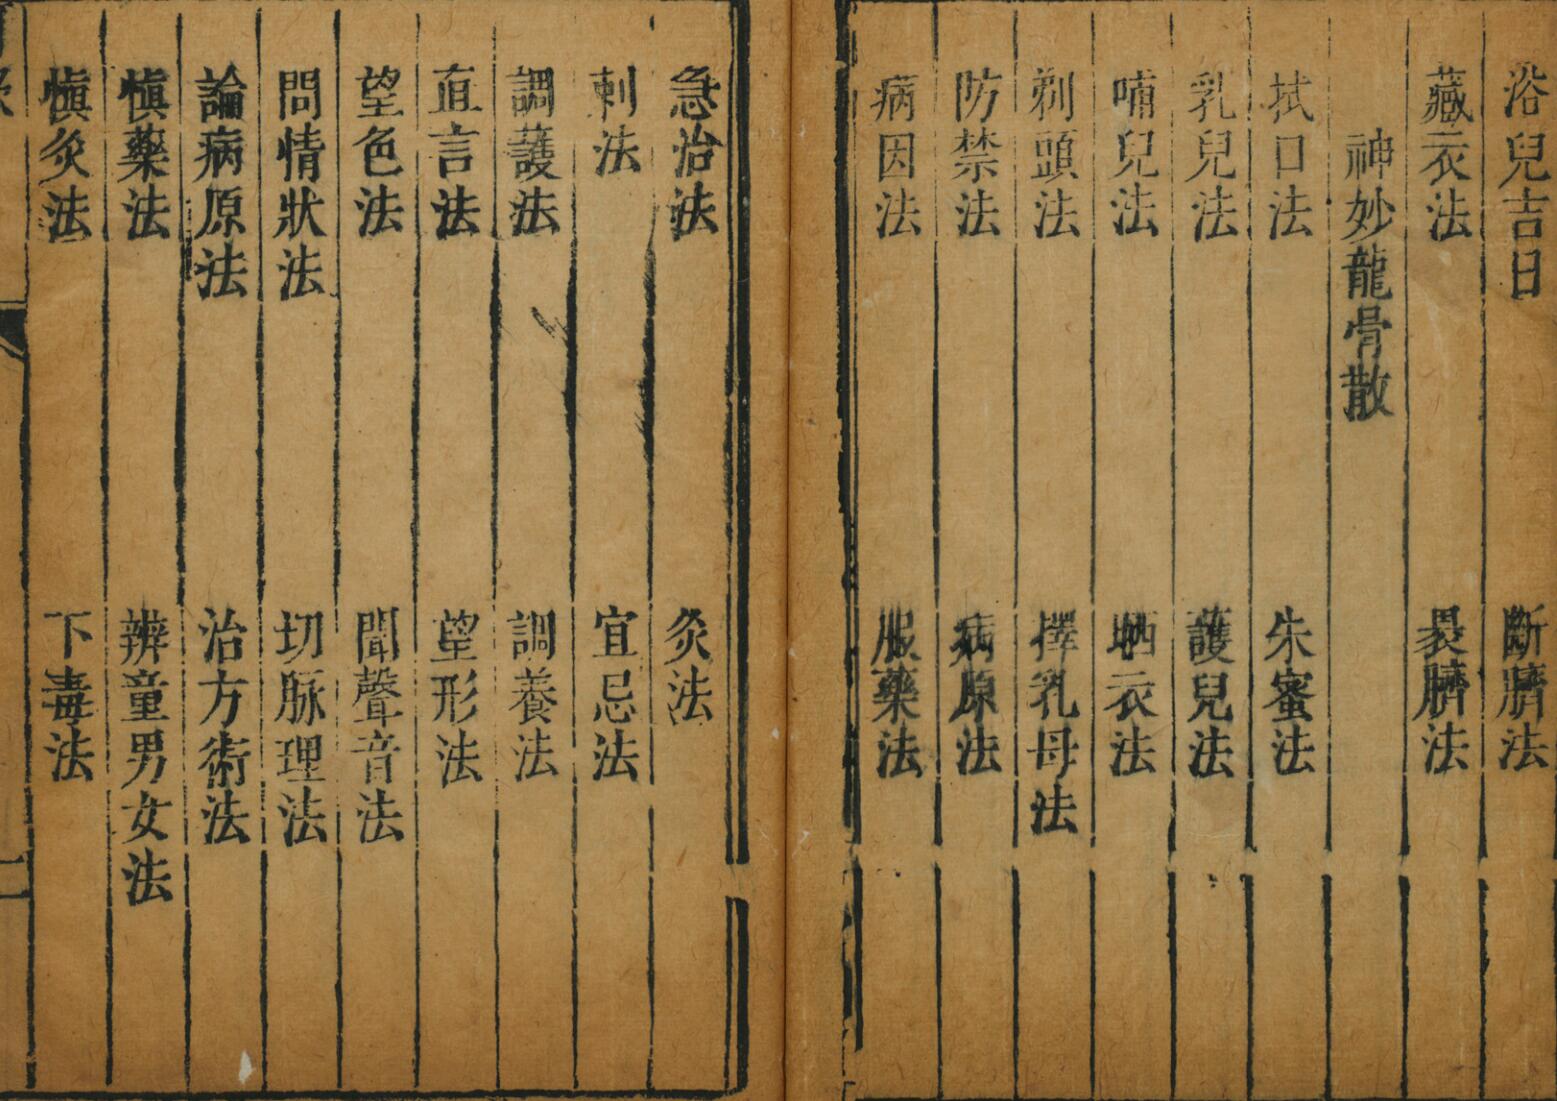 浴兒吉日 斷臍法
藏衣法 裹臍法
神妙龍骨散
拭口法 朱蜜法
乳兒法 護兒法
哺兒法 晒衣法
剃頭法 擇乳母法
防禁法 病原法
病因法 服藥法
急治法 灸法
刺法 宜忌法
調護法 調養法
直言法 望形法
望色法 聞聲音法
問情狀法 切脈理法
論病原法 治方術法
慎藥法 辨童男女法
慎灸法 下毒法